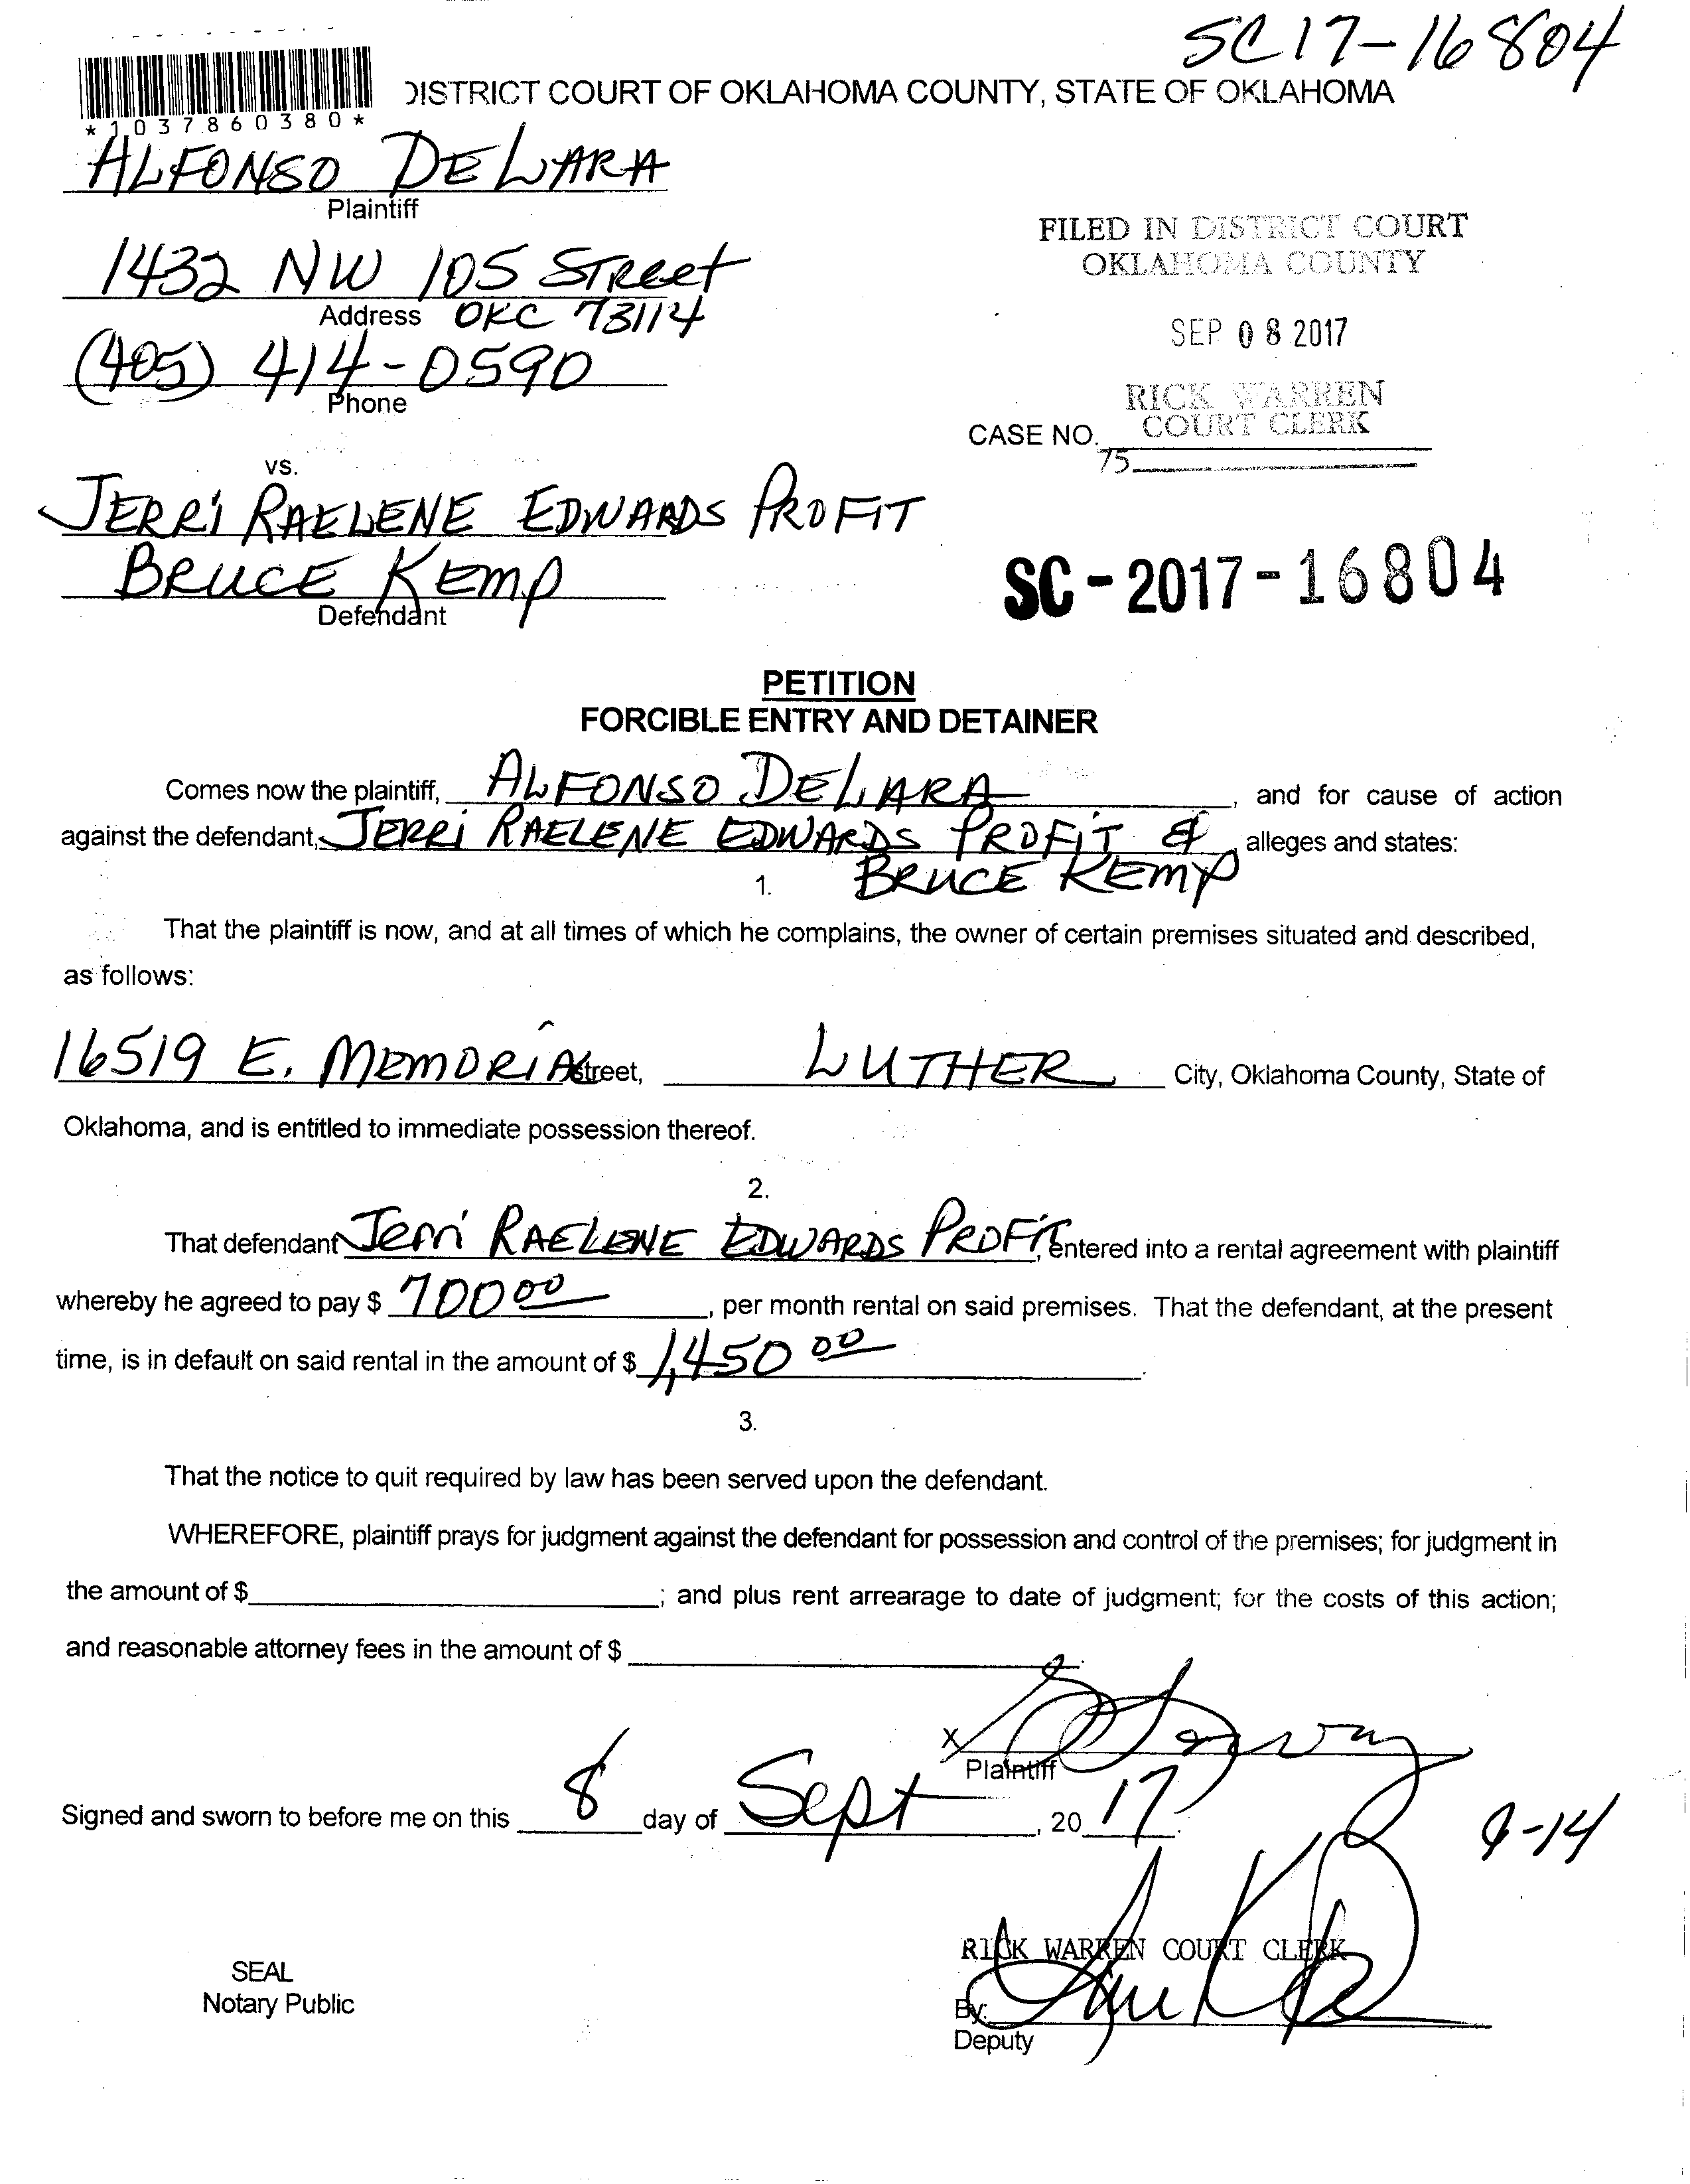 SC17-16804
DISTRICT COURT OF OKLAHOMA COUNTY, STATE OF OKLAHOMA
*1037860380*
ALFONSO DELARA
Plaintiff
1432 NW 105 Street
Address OKC 73114
(405) 414-0590
Phone
FILED IN DISTRICT COURT
OKLAHOMA COUNTY
SEP 08 2017
RICK WARREN
COURT CLERK
CASE NO.
75
vs.
JERRi RAELENE EDWARDS PROFIT
BRUCE KEMP
Defendant
SC-2017-16804
PETITION
FORCIBLE ENTRY AND DETAINER
Comes now the plaintiff, ALFONSO DELARA, and for cause of action
against the defendant, JERRi RAELENE EDWARDS PROFiT & alleges and states:
BRUCE KEMP
1.
That the plaintiff is now, and at all times of which he complains, the owner of certain premises situated and described,
as follows:
16519 E. MEMORiAL Street, LUTHER City, Oklahoma County, State of
Oklahoma, and is entitled to immediate possession thereof.
2.
That defendant Jerri RAELENE EDWARDS PROFiT, entered into a rental agreement with plaintiff
whereby he agreed to pay $ 700 00, per month rental on said premises. That the defendant, at the present
time, is in default on said rental in the amount of $ 1,450 00.
3.
That the notice to quit required by law has been served upon the defendant.
WHEREFORE, plaintiff prays for judgment against the defendant for possession and control of the premises; for judgment in
the amount of $ ; and plus rent arrearage to date of judgment; for the costs of this action;
and reasonable attorney fees in the amount of $ .
X
Plaintiff
Signed and sworn to before me on this 8 day of Sept, 20 17.
9-14
RICK WARREN COURT CLERK
SEAL
Notary Public
By:
Deputy